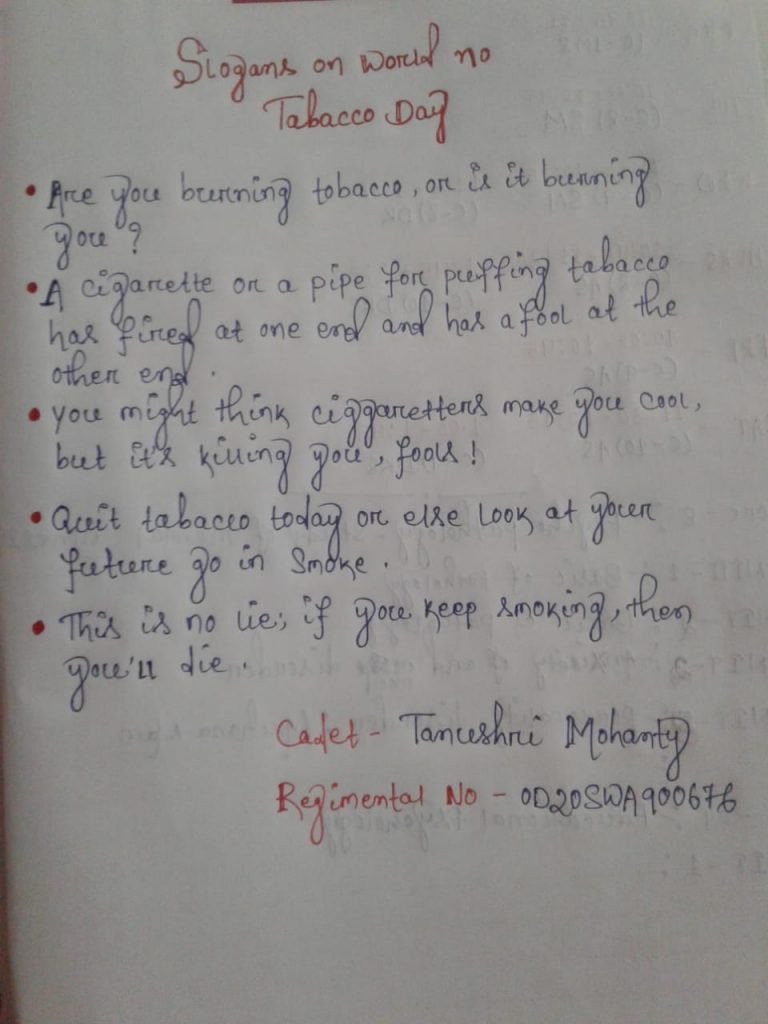 Slogans on world no
Tabacco Day
• Are you burning tobacco, or is it burning
you ?
• A cigarette or a pipe for puffing tabacco
has fired at one end and has a fool at the
other end .
• you might think ciggaretters make you cool,
but it's killing you, fools !
• Quit tabacco today or else look at your
future go in smoke .
• This is no lie; if you keep smoking, then
you'll die .
Cadet - Tanushri Mohanty
Regimental No - OD20SWA900676